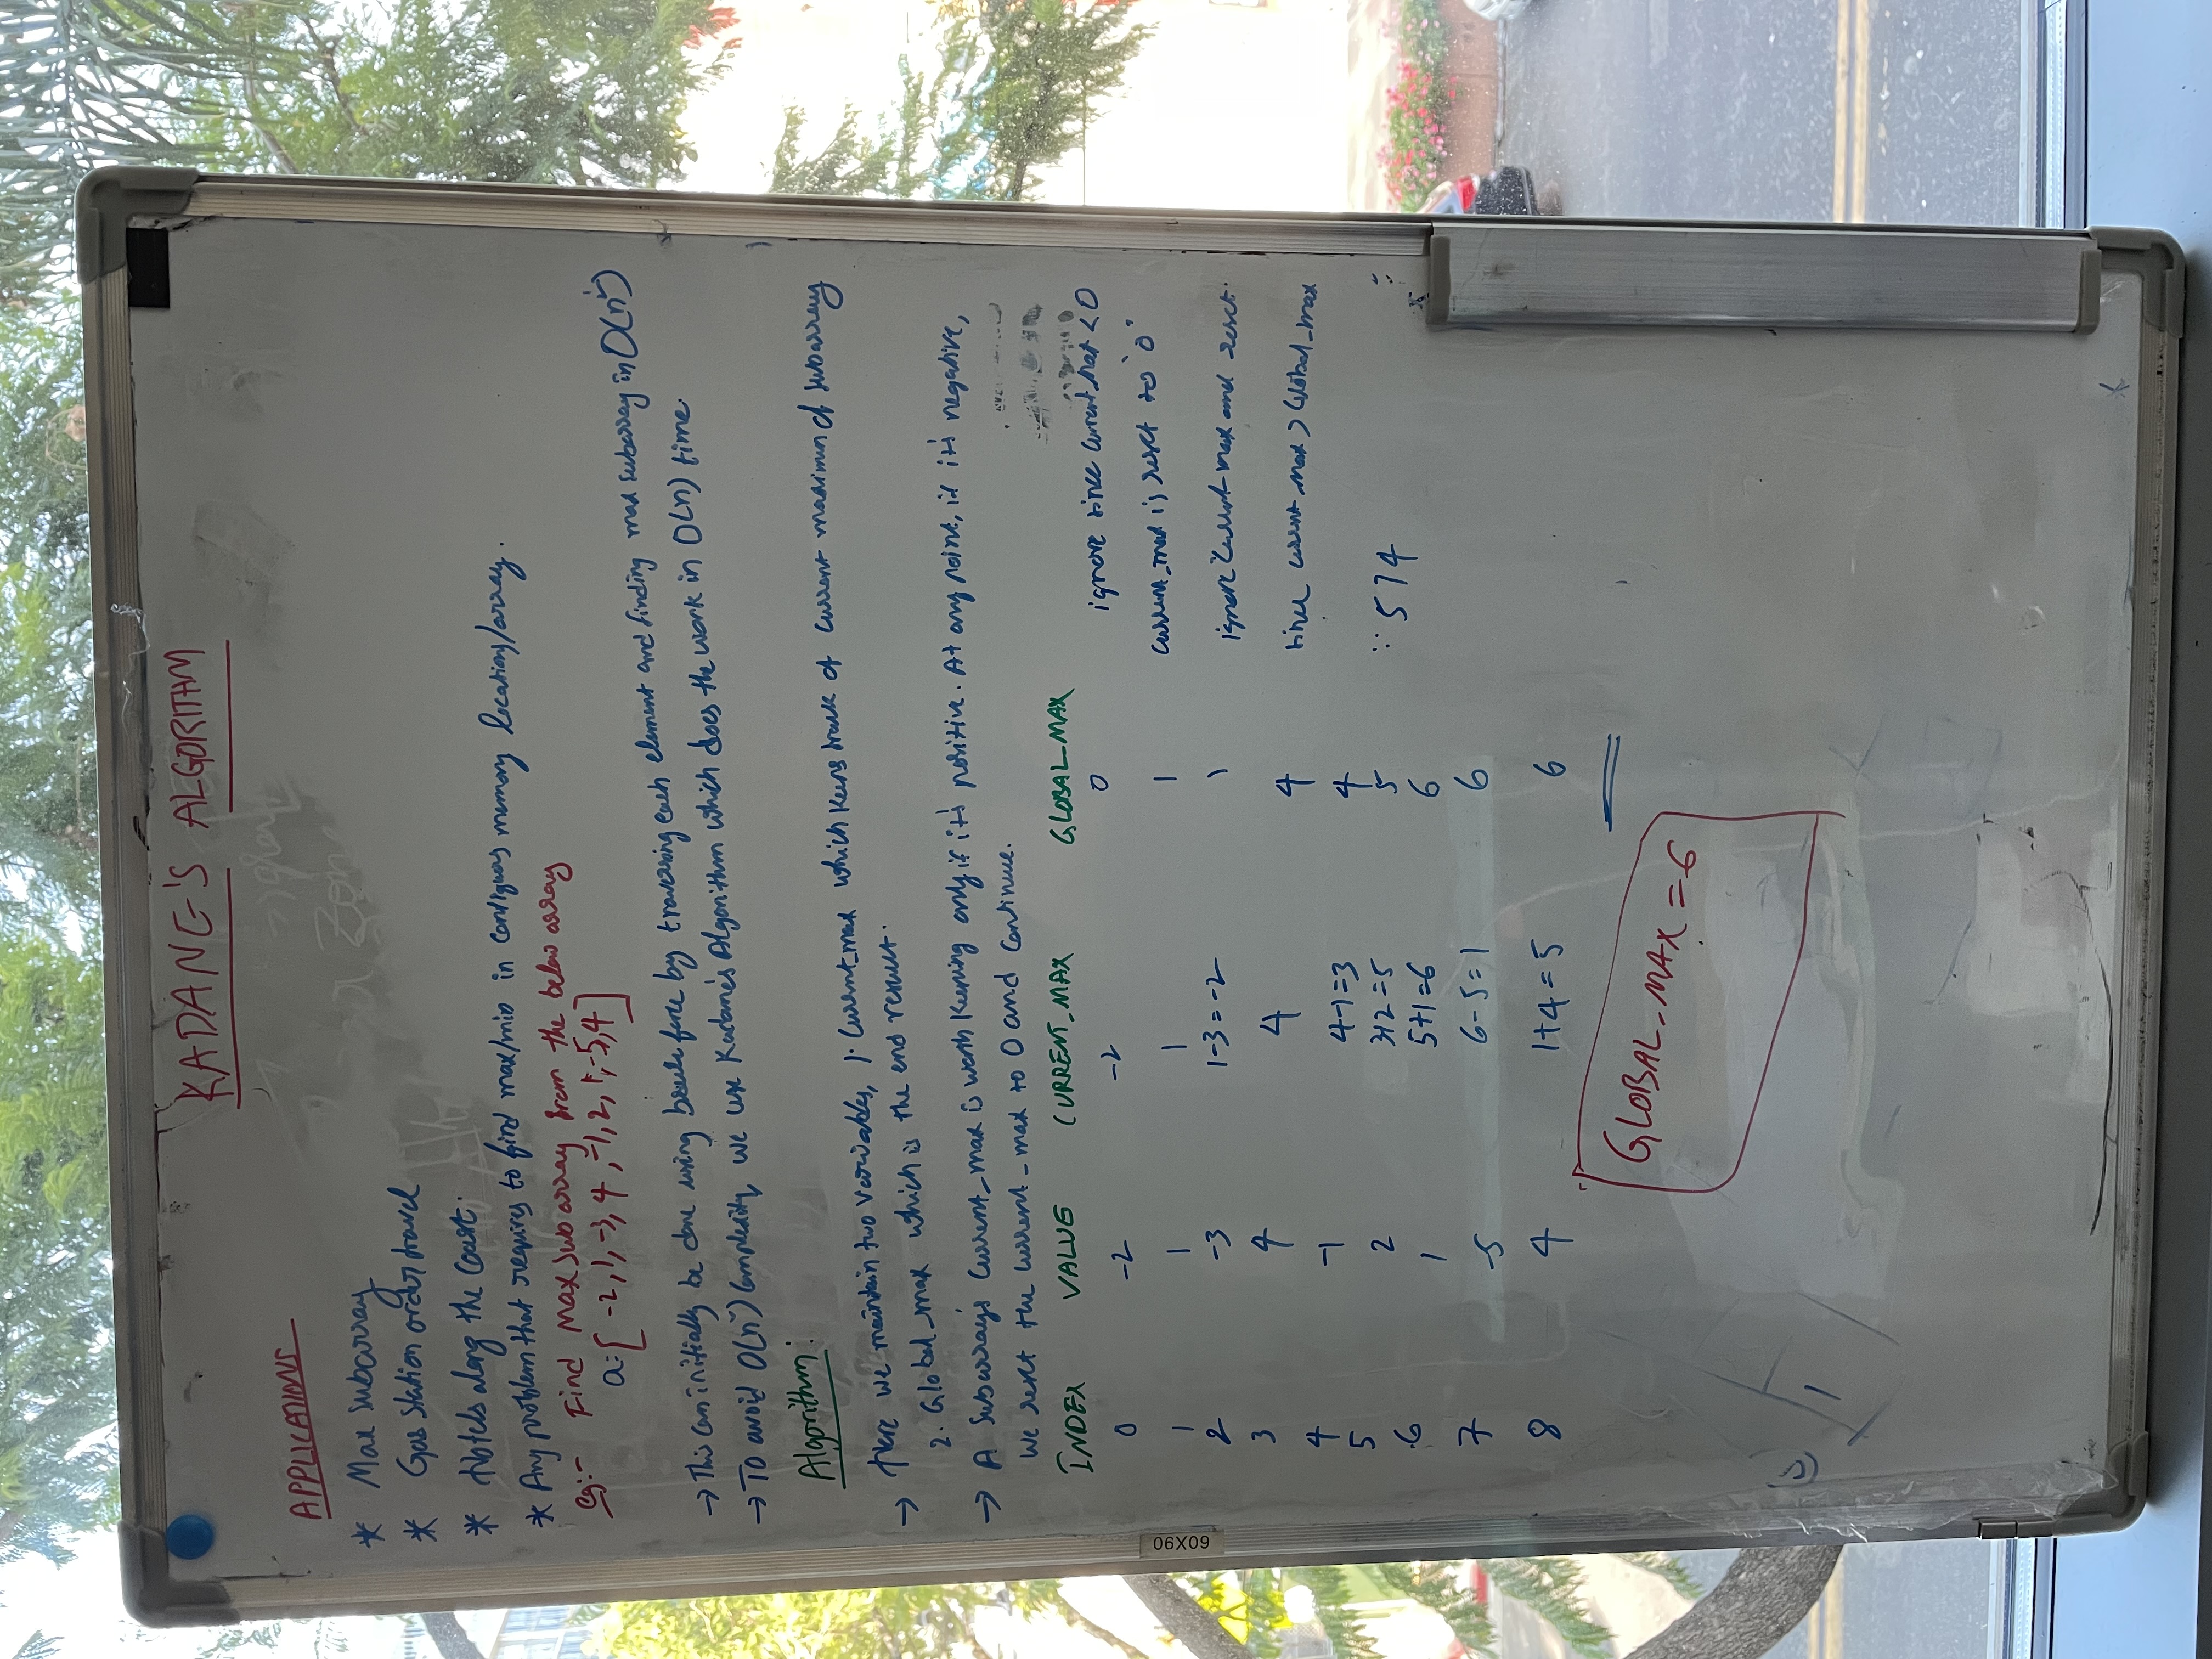 KADANE'S ALGORITHM
APPLICATIONS
* Max Subarray
* Gas Station order travel
* Hotels along the Coast.
* Any problem that requires to find max/min in contiguous memory locations/array.
eg:- Find Max Subarray from the below array
a=[ -2, 1, -3, 4, -1, 2, 1, -5, 4 ]
→ This can initially be done using brute force by traversing each element and finding max subarray in O(n²)
→ To avoid O(n²) Complexity, we use Kadane's Algorithm which does the work in O(n) time.
Algorithm:
→ Here we maintain two variables, 1. Current_max which keeps track of current maximum of subarray
2. Global_max which is the end result.
→ A Subarray's Current_max is worth keeping only if it's positive. At any point, if it's negative,
we reset the current_max to 0 and continue.
INDEX VALUE CURRENT_MAX GLOBAL_MAX
0 -2 -2 0 ignore since current_max < 0
1 1 1 1 current_max is reset to '0'
2 -3 1-3=-2 1 ignore current max and reset.
3 4 4 4 since current_max > Global_max
4 -1 4-1=3 4
5 2 3+2=5 5 ∵ 5>4
6 1 5+1=6 6
7 -5 6-5=1 6
8 4 1+4=5 6
GLOBAL_MAX = 6
60X90